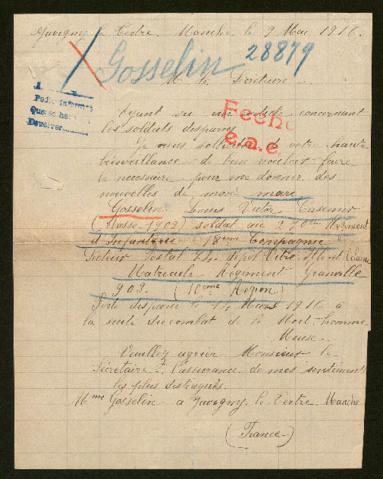 Juvigny le Tertre Manche le 9 Mai 1916.
Gosselin 28879
M. le Directeur
Ayant vu un article concernant
les soldats disparus
Je viens solliciter de votre haute
bienveillance de bien vouloir faire
le nécessaire pour me donner des
nouvelles de mon mari
Gosselin Louis Victor
(classe 1902) soldat au Régiment
d'Infanterie 18eme Compagnie
Secteur Postal Dépot Vitré
Matricule Régiment Granville
903. (10eme Région)
Porté disparu le 14 Mars 1916 à
la suite du combat de le Mort-homme
Meuse.
Veuillez agréer Monsieur le
Secrétaire l'assurance de mes sentiments
les plus distingués.
Mme Gosselin a Juvigny le Tertre Manche
(France)